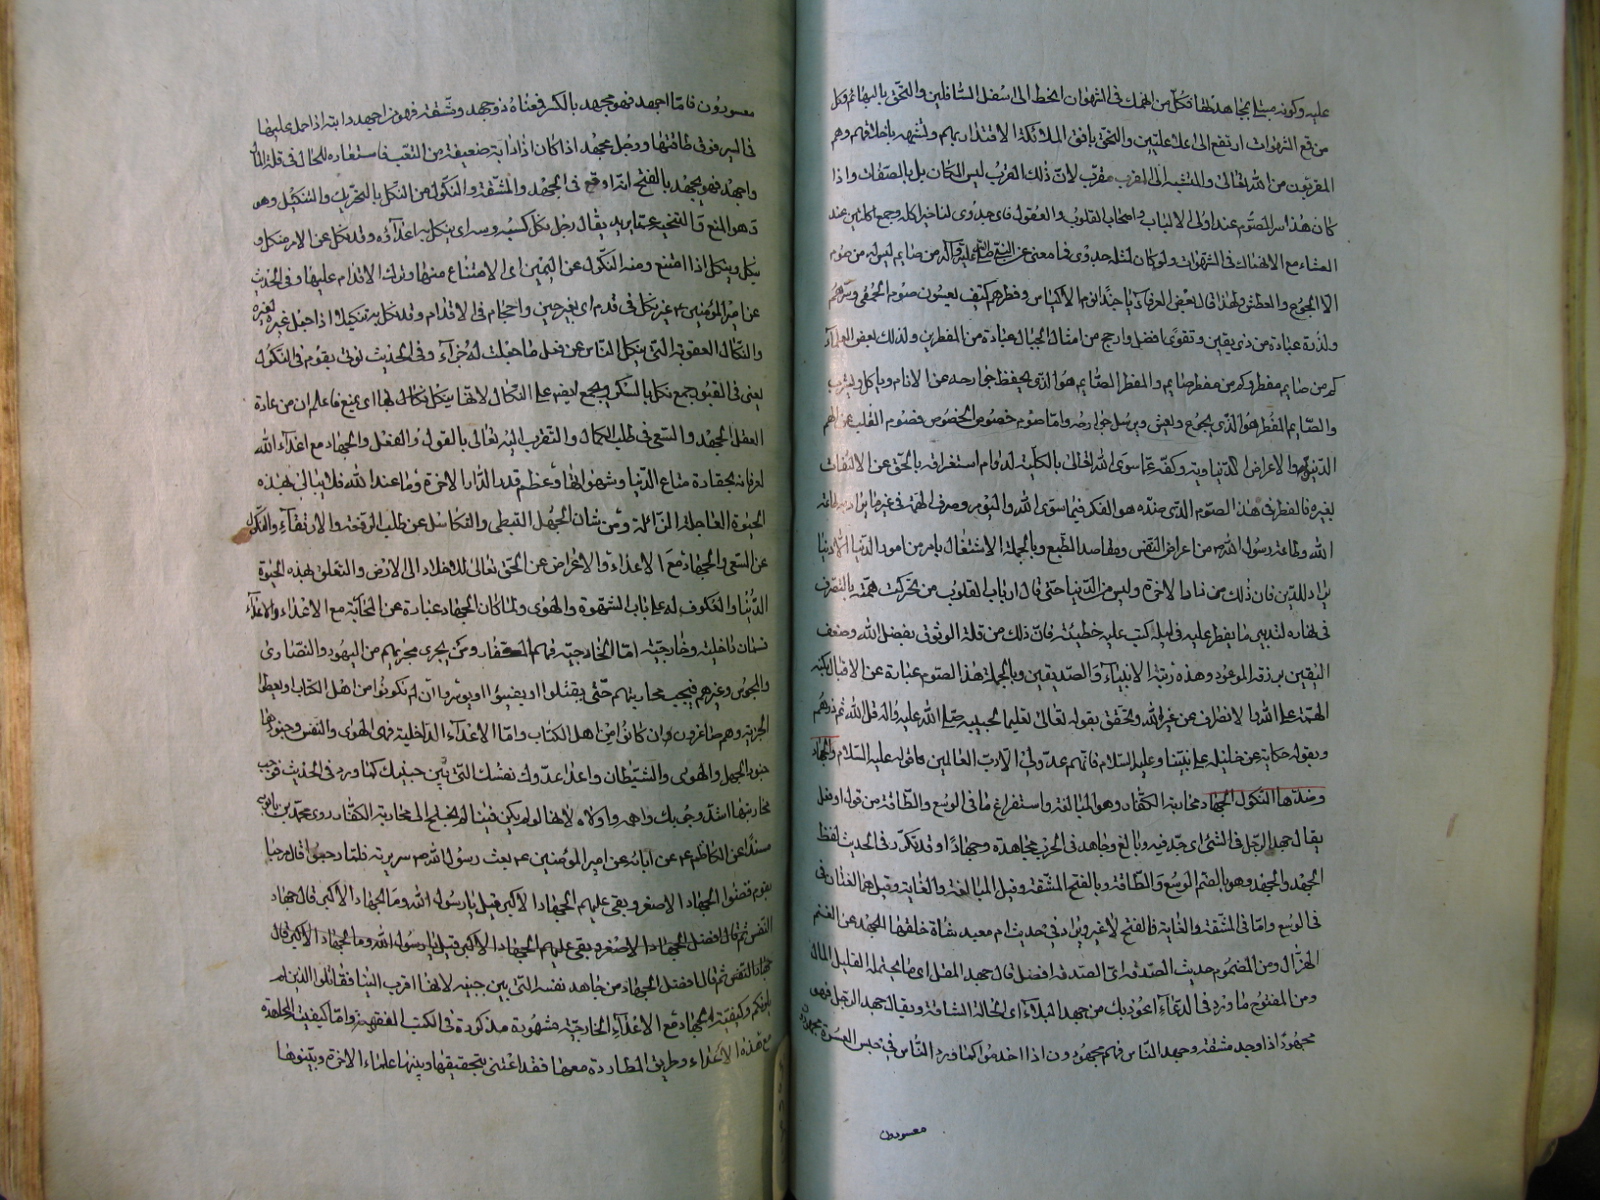 عليه وكونه مبتلى بمجاهدتها فكل من انهمك فى الشهوات انحط الى اسفل السافلين والتحق بالبهائم وكل
من قمع الشهوات ارتفع الى اعلا عليين والتحق بافق الملائكة الاقتداء بهم والتشبه باخلاقهم وهم
المقربون من الله تعالى والمتشبه الى المقرب مقرب لان ذلك القرب ليس بالمكان بل بالصفات واذا
كان هذا سر الصوم عند اولى الالباب واصحاب القلوب والعقول فاى جدوى لتاخير اكلة وجمع اكلتين عند
العشاء مع الانهماك فى الشهوات ولو كان لمثله جدوى فما معنى عن النبى صلى الله عليه وآله كم من صايم ليس له من صوم
الا الجوع والعطش ولهذا قال بعض العرفاء يا حبذا نوم الاكياس وفطرهم كيف يعيبون صوم الحمقى وسهرهم
ولذرة عبادة من ذى يقين وتقوى افضل وارجح من امثال الجبال عبادة من المغترين ولذلك بعض العلماء
كم من صايم مفطر وكم من مفطر صايم والمفطر الصايم هو الذى يحفظ جوارحه عن الاثام وياكل ويشرب
والصايم المفطر هو الذى يجوع ويعطش ويرسل جوارحه واما صوم خصوص الخصوص فصوم القلب عن الهم
الدنيوية والاعراض الدنياوية وكفه عما سوى الله تعالى بالكلية لدوام استغراقه بالحق عن الالتفات
لغيره فالفطر فى هذا الصوم الذى ضده هو الفكر فيما سوى الله واليوم وصرف الهمة فى غير ما يراد به طاعة
الله وطاعة رسول الله ص من اعراض النفس ومقاصد الطبع وبالجملة الاشتغال بامر من امور الدنيا الا دنيا
يراد للدين فان ذلك من زاد الاخرة وليس من الدنيا حتى قال ارباب القلوب من تحركت همته بالتصرف
فى نهاره لتدبير ما يفطر عليه فى ليله كتب عليه خطيئة فان ذلك من قلة الوثوق بفضل الله وضعف
اليقين برزقه الموعود وهذه رتبة الانبياء والصديقين وبالجملة هذا الصوم عبارة عن الاقبال بكنه
الهمة على الله والانصراف عن غير الله وتحقق بقوله تعالى تعليما لحبيبه صلى الله عليه وآله قل الله ثم ذرهم
وبقوله حكاية عن خليله على نبينا وعليه السلام فانهم عدو لى الا رب العالمين قوله عليه السلام والجهاد
وضدها النكول الجهاد محاربة الكفار وهو المبالغة واستفراغ ما فى الوسع والطاقة من قول او فعل
يقال جهد الرجل فى الشئ اى جد فيه وبالغ وجاهد فى الحرب مجاهدة وجهادا وقد تكرر فى الحديث لفظ
الجهد والجهد وهو بالضم الوسع والطاقة وبالفتح المشقة وقيل المبالغة والغاية وقيل هما لغتان فى
فى الوسع واما فى المشقة والغاية فالفتح لا غير ويراد فى حديث ام معبد شاة خلفها الجهد عن الغنم
الهزال ومن المضموم حديث الصدقة اى الصدقة افضل قال جهد المقل اى ما يحتمله القليل المال
ومن المفتوح ما ورد فى الدعاء اعوذ بك من جهد البلاء اى الحالة الشاقة ويقال جهد الرجل فهو
مجهود اذا وجد مشقة وجهد الناس فهم مجهودون اذا اجدبوا كما ورد الناس فى جيش العسرة مجهدون
معسرون
معسرون فاما اجهد فهو مجهد بالكسر فمعناه ذو جهد ومشقة فهو من اجهد دابته اذا حمل عليها
فى السير فوق طاقتها ورجل مجهد اذا كان اذا دابة ضعيفة من التعب فاستعاره للحال فى قلة المال
واجهد فهو مجهد بالفتح اى انه اوقع فى الجهد والمشقة والنكول من النكل بالتحريك والتنكيل وهو
وهو المنع والتنحية عما يريد يقال رجل نكل كسبه وسه اى ينكل به اعداؤه وقد نكل عن الامر ينكل و
نكل وينكل اذا امتنع ومنه النكول عن اليمين اى الامتناع منها وترك الاقدام عليها وفى الحديث
عن امير المؤمنين ع غير نكل فى قدم اى بغير جبن واحجام فى الاقدام وقد نكل به تنكيلا اذا جعل غيره لغيره
والنكال العقوبة التى ينكل الناس عن فعل ما جعلت له جزاء وفى الحديث نوتى بقوم فى النكول
يعنى فى القيود جمع نكل بالسكون ويجمع ايضا على النكال لانها ينكل نكالا لها اى يمنع فاعلم ان من عادة
العقل الجهد والسعى فى طلب الكمال والتقرب اليه تعالى بالقول والفعل والجهاد مع اعداء الله
لعرفانه بحقارة متاع الدنيا وشهواتها وعظم قدر الدار الاخرة وما عند الله فلا يبالى بهذه
الحيوة العاجلة الزائلة ومن شان الجهل التبطى والتكاسل عن طلب الرفعة والارتقاء والنكول
عن السعى والجهاد مع الاعداء والاعراض عن الحق تعالى للاخلاد الى الارض والتعلق بهذه الحيوة
الدنيا والعكوف له على باب الشهوة والهوى ولما كان الجهاد عبارة عن المحاربة مع الاعداء والاعداء
قسمان داخلية وخارجية اما الخارجية فهم الكفار ومن يجرى مجريهم من اليهود والنصارى
والمجوس وغيرهم فيجب محاربتهم حتى يقتلوا او يفيئوا او يوسروا ان لم يكونوا من اهل الكتاب او يعطوا
الجزية وهم صاغرون وان كانوا من اهل الكتاب واما الاعداء الداخلية فهى الهوى والنفس وجنودها
جنود الجهل والهوى والشيطان واعدا عدوك نفسك التى بين جنبيك كما ورد فى الحديث فوجب
محاربتها اشد وجوبك واهم واولاه لانها لو لم يكن فينا لم يحتج الى محاربة الكفار روى محمد بن بابويه
مسندا عن الكاظم ع عن ابائه عن امير المؤمنين ع بعث رسول الله ص سرية فلما رجعوا قال مرحبا
بقوم قضوا الجهاد الاصغر وبقى عليهم الجهاد الاكبر قيل يا رسول الله وما الجهاد الاكبر قال جهاد
النفس ثم قال افضل الجهاد الاصغر وبقى عليهم الجهاد الاكبر قيل يا رسول الله وما الجهاد الاكبر قال
جهاد النفس ثم قال افضل الجهاد من جاهد نفسه التى بين جنبيه لانها اقرب الينا فقاتلوا الذين هم
يلونكم وكيفية الجهاد مع الاعداء الخارجية مشهورة مذكورة فى الكتب الفقهية واما كيفية المجاهدة
مع هذه الاعداء وطريق المطاردة معها فقد اعتنى بتحقيقها وبينها علماء الاخرة وبينوها